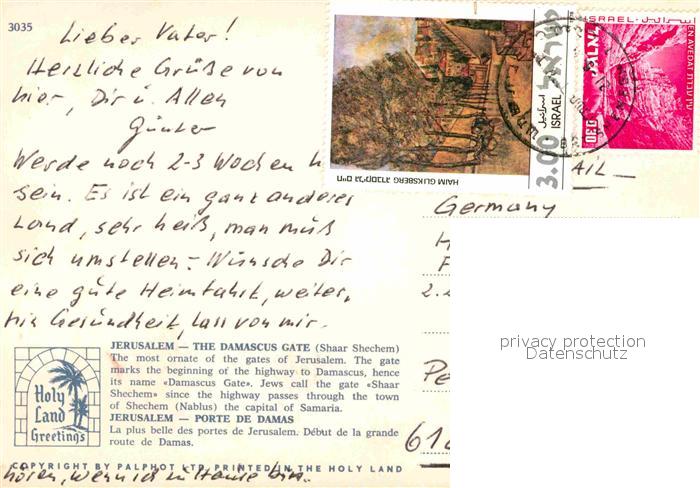 3035
Lieber Vater!
Herzliche Grüße von
hier, Dir u. Allen
Günter
Werde noch 2-3 Wochen h
sein. Es ist ein ganz anderes
Land, sehr heiß, man muß
sich umstellen. Wünsche Dir
eine gute Heimfahrt, weiter,
hin Gesundheit, lass von mir.
hören, wenn ich zu Hause bin.
JERUSALEM — THE DAMASCUS GATE (Shaar Shechem)
The most ornate of the gates of Jerusalem. The gate
marks the beginning of the highway to Damascus, hence
its name «Damascus Gate». Jews call the gate «Shaar
Shechem» since the highway passes through the town
of Shechem (Nablus) the capital of Samaria.
JERUSALEM — PORTE DE DAMAS
La plus belle des portes de Jerusalem. Début de la grande
route de Damas.
Holy
Land
Greetings
COPYRIGHT BY PALPHOT LTD. PRINTED IN THE HOLY LAND
HAIM GLIKSBERG חיים גליקסברג
3.00 ISRAEL اسرائيل ישראל
ISRAEL
EN AVEDAT עין עבדת
ישראל
0.80
AIL
Germany
H
F
2.2
Pe
61
privacy protection
Datenschutz